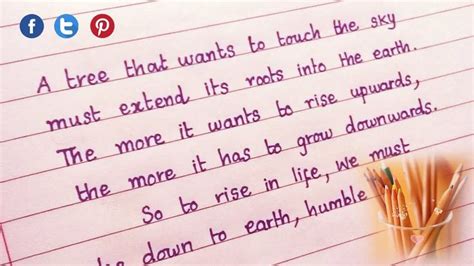 A tree that wants to touch the sky
must extend its roots into the earth.
The more it wants to rise upwards,
the more it has to grow downwards.
So to rise in life, we must
down to earth, humble